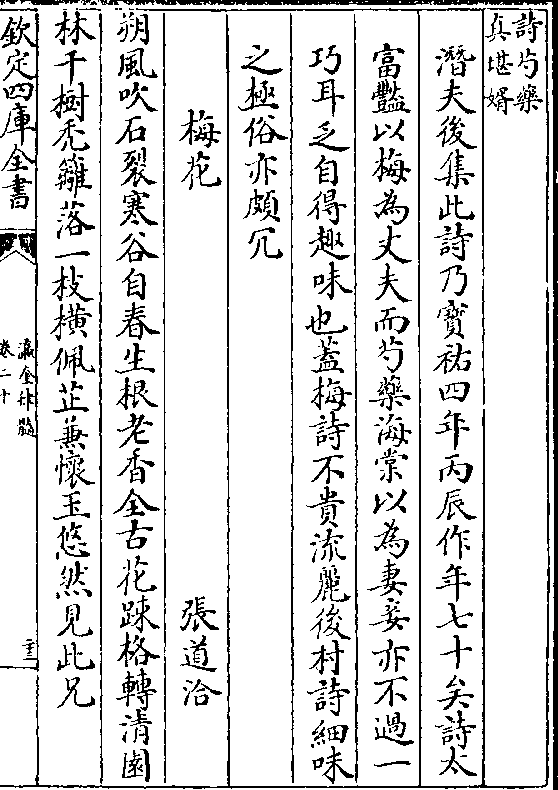 詩芍藥
真堪婿
潛夫後集此詩乃寳祐四年丙辰作年七十矣詩太
富豔以梅為丈夫而芍藥海棠以為妻妾亦不過一
巧耳乏自得趣味也蓋梅詩不貴流麗後村詩細味
之極俗亦頗冗
梅花 張道洽
朔風吹石裂寒谷自春生根老香全古花踈格轉清園
林千樹秃籬落一枝横佩芷兼懷玉悠然見此兄
欽定四庫全書
瀛奎律髓
卷二十